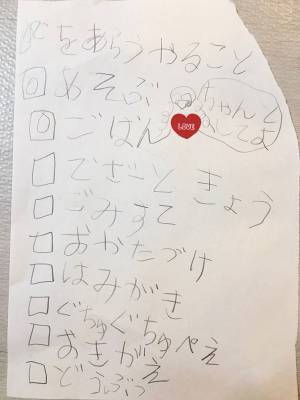 をあらうやること
めそぶ
ごはん
LOVE
ちゃんと
してよ
でざーと きょう
ごみすて
おかたづけ
はみがき
ぐちゅぐちゅぺえ
おきがえ
どうぶつ